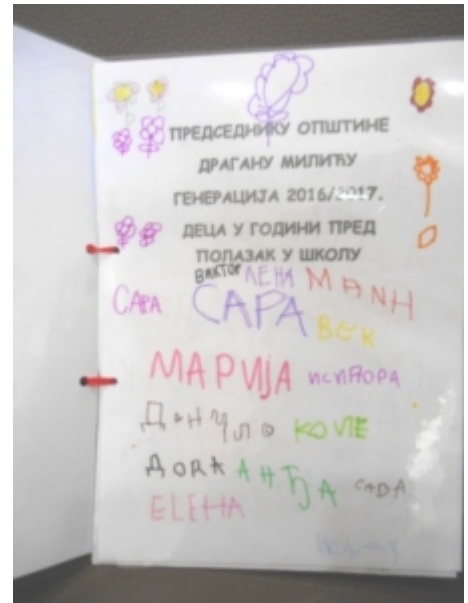 ПРЕДСЕДНИКУ ОПШТИНЕ
ДРАГАНУ МИЛИЋУ
ГЕНЕРАЦИЈА 2016/2017.
ДЕЦА У ГОДИНИ ПРЕД
ПОЛАЗАК У ШКОЛУ
ВИКТОР ЛЕНА
САРА САРА
МАРИЈА
ДОРА АНЂА САВА
ЕLЕНА